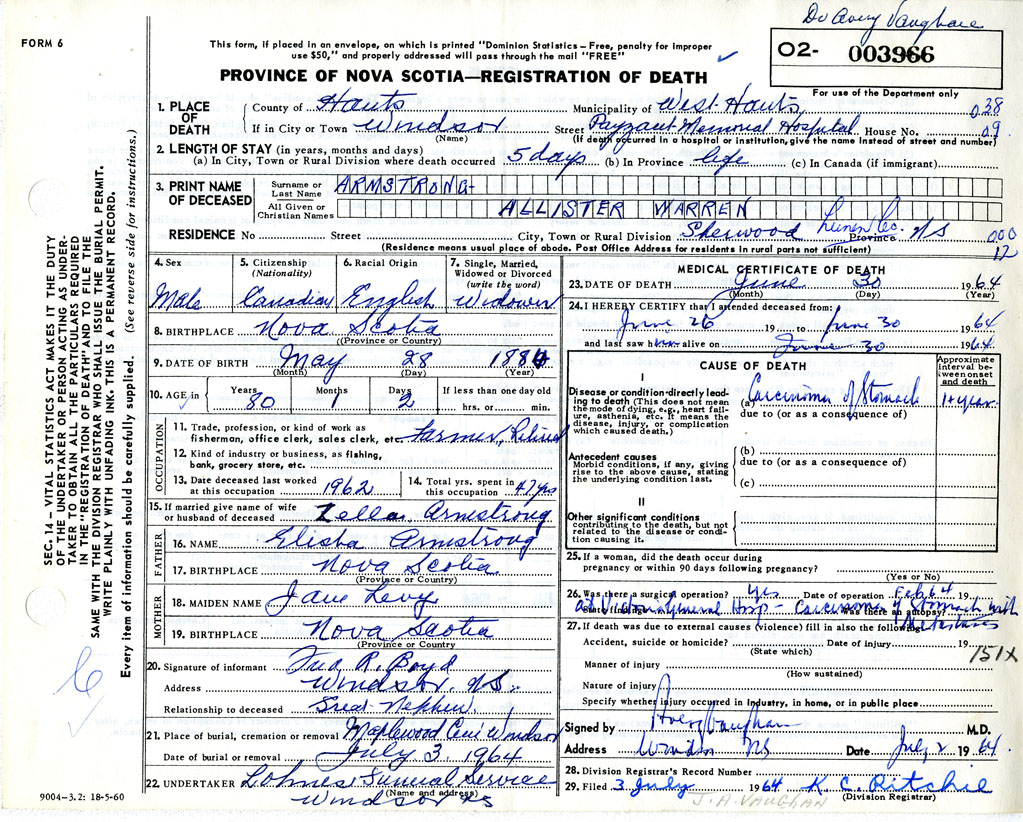 Dr Avery Vaughan
FORM 6
This form, if placed in an envelope, on which is printed "Dominion Statistics—Free, penalty for improper
use $50," and properly addressed will pass through the mail "FREE"
O2- 003966
PROVINCE OF NOVA SCOTIA—REGISTRATION OF DEATH
For use of the Department only
1. PLACE OF DEATH
County of Hants Municipality of West Hants 038
If in City or Town Windsor Street Payzant Memorial Hospital House No. 09
(Name) (If death occurred in a hospital or institution, give the name instead of street and number)
2. LENGTH OF STAY (in years, months and days)
(a) In City, Town or Rural Division where death occurred 5 days (b) In Province life (c) In Canada (if immigrant)
3. PRINT NAME OF DECEASED
Surname or Last Name ARMSTRONG
All Given or Christian Names ALLISTER WARREN
RESIDENCE No Street City, Town or Rural Division Sherwood Lunen Co. Province NS 000
(Residence means usual place of abode. Post Office Address for residents in rural parts not sufficient) 12
4. Sex Male
5. Citizenship (Nationality) Canadian
6. Racial Origin English
7. Single, Married, Widowed or Divorced (write the word) Widower
8. BIRTHPLACE Nova Scotia
(Province or Country)
9. DATE OF BIRTH May 28 1884
(Month) (Day) (Year)
10. AGE in Years 80 Months 1 Days 2 If less than one day old hrs. or min.
OCCUPATION
11. Trade, profession, or kind of work as fisherman, office clerk, sales clerk, etc. Farmer, Retired
12. Kind of industry or business, as fishing, bank, grocery store, etc.
13. Date deceased last worked at this occupation 1962
14. Total yrs. spent in this occupation 47 yrs
15. If married give name of wife or husband of deceased Zella Armstrong
FATHER
16. NAME Elisha Armstrong
17. BIRTHPLACE Nova Scotia
(Province or Country)
MOTHER
18. MAIDEN NAME Jane Levy
19. BIRTHPLACE Nova Scotia
(Province or Country)
20. Signature of informant Fred R. Boyd
Address Windsor, NS.
Relationship to deceased Great Nephew
21. Place of burial, cremation or removal Maplewood Cem. Windsor
Date of burial or removal July 3, 1964
22. UNDERTAKER Lohnes Funeral Service
(Name and address) Windsor NS
MEDICAL CERTIFICATE OF DEATH
23. DATE OF DEATH June 30 1964
(Month) (Day) (Year)
24. I HEREBY CERTIFY that I attended deceased from:
June 26 19 to June 30 1964
and last saw h alive on June 30 1964
CAUSE OF DEATH
Approximate interval between onset and death
I
Disease or condition directly leading to death (This does not mean the mode of dying, e.g., heart failure, asthenia, etc. It means the disease, injury, or complication which caused death.)
(a) Carcinoma of Stomach 1+ year
due to (or as a consequence of)
Antecedent causes
Morbid conditions, if any, giving rise to the above cause, stating the underlying condition last.
(b)
due to (or as a consequence of)
(c)
II
Other significant conditions
contributing to the death, but not related to the disease or condition causing it.
25. If a woman, did the death occur during pregnancy or within 90 days following pregnancy?
(Yes or No)
26. Was there a surgical operation? Yes Date of operation Feb 64 19
State findings Was there an autopsy?
at Victoria General Hosp - Carcinoma of Stomach with Metastases
27. If death was due to external causes (violence) fill in also the following:
Accident, suicide or homicide? Date of injury 19
(State which) 151X
Manner of injury
(How sustained)
Nature of injury
Specify whether injury occurred in industry, in home, or in public place
Signed by Avery Vaughan M.D.
Address Windsor NS Date July 2 1964
28. Division Registrar's Record Number
29. Filed 3 July 1964 K. C. Ritchie
(Division Registrar)
J. A. VAUGHAN
9004-3.2: 18-5-60
SEC. 14 - VITAL STATISTICS ACT MAKES IT THE DUTY
OF THE UNDERTAKER OR PERSON ACTING AS UNDER-
TAKER TO OBTAIN ALL THE PARTICULARS REQUIRED
IN THE "REGISTRATION OF DEATH" AND FILE THE
SAME WITH THE DIVISION REGISTRAR WHO SHALL ISSUE THE BURIAL PERMIT.
WRITE PLAINLY WITH UNFADING INK. THIS IS A PERMANENT RECORD.
Every item of information should be carefully supplied. (See reverse side for instructions.)